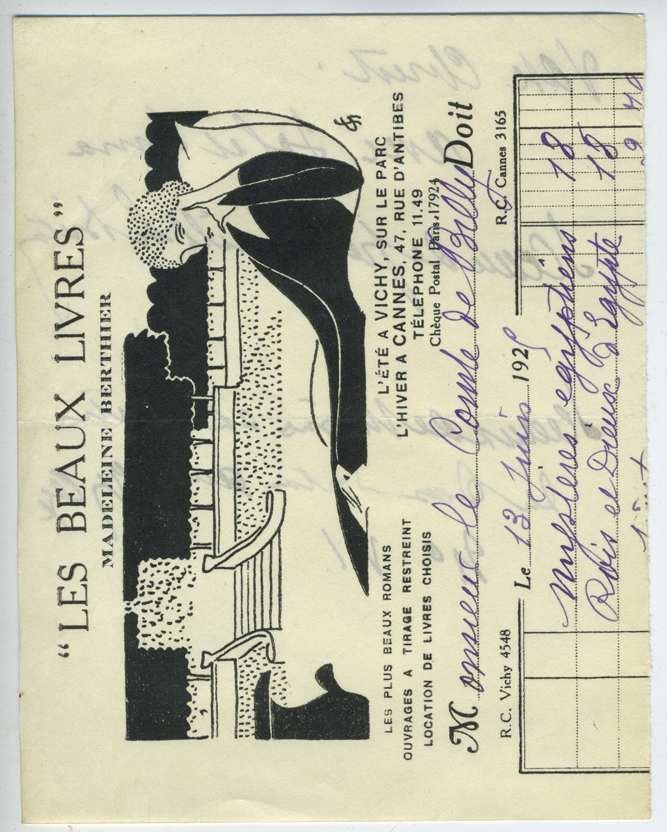 “LES BEAUX LIVRES”
MADELEINE BERTHIER
LES PLUS BEAUX ROMANS
OUVRAGES A TIRAGE RESTREINT
LOCATION DE LIVRES CHOISIS
L'ÉTÉ A VICHY, SUR LE PARC
L'HIVER A CANNES, 47, RUE D'ANTIBES
TÉLÉPHONE 11.49
Chèque Postal Paris.17924
Monsieur le Comte de Doit
R.C. Vichy 4548
Le 13 Juin 192
R.C. Cannes 3165
Mystères égyptiens 18
Rois et Dieux d'Egypte 18
9 40